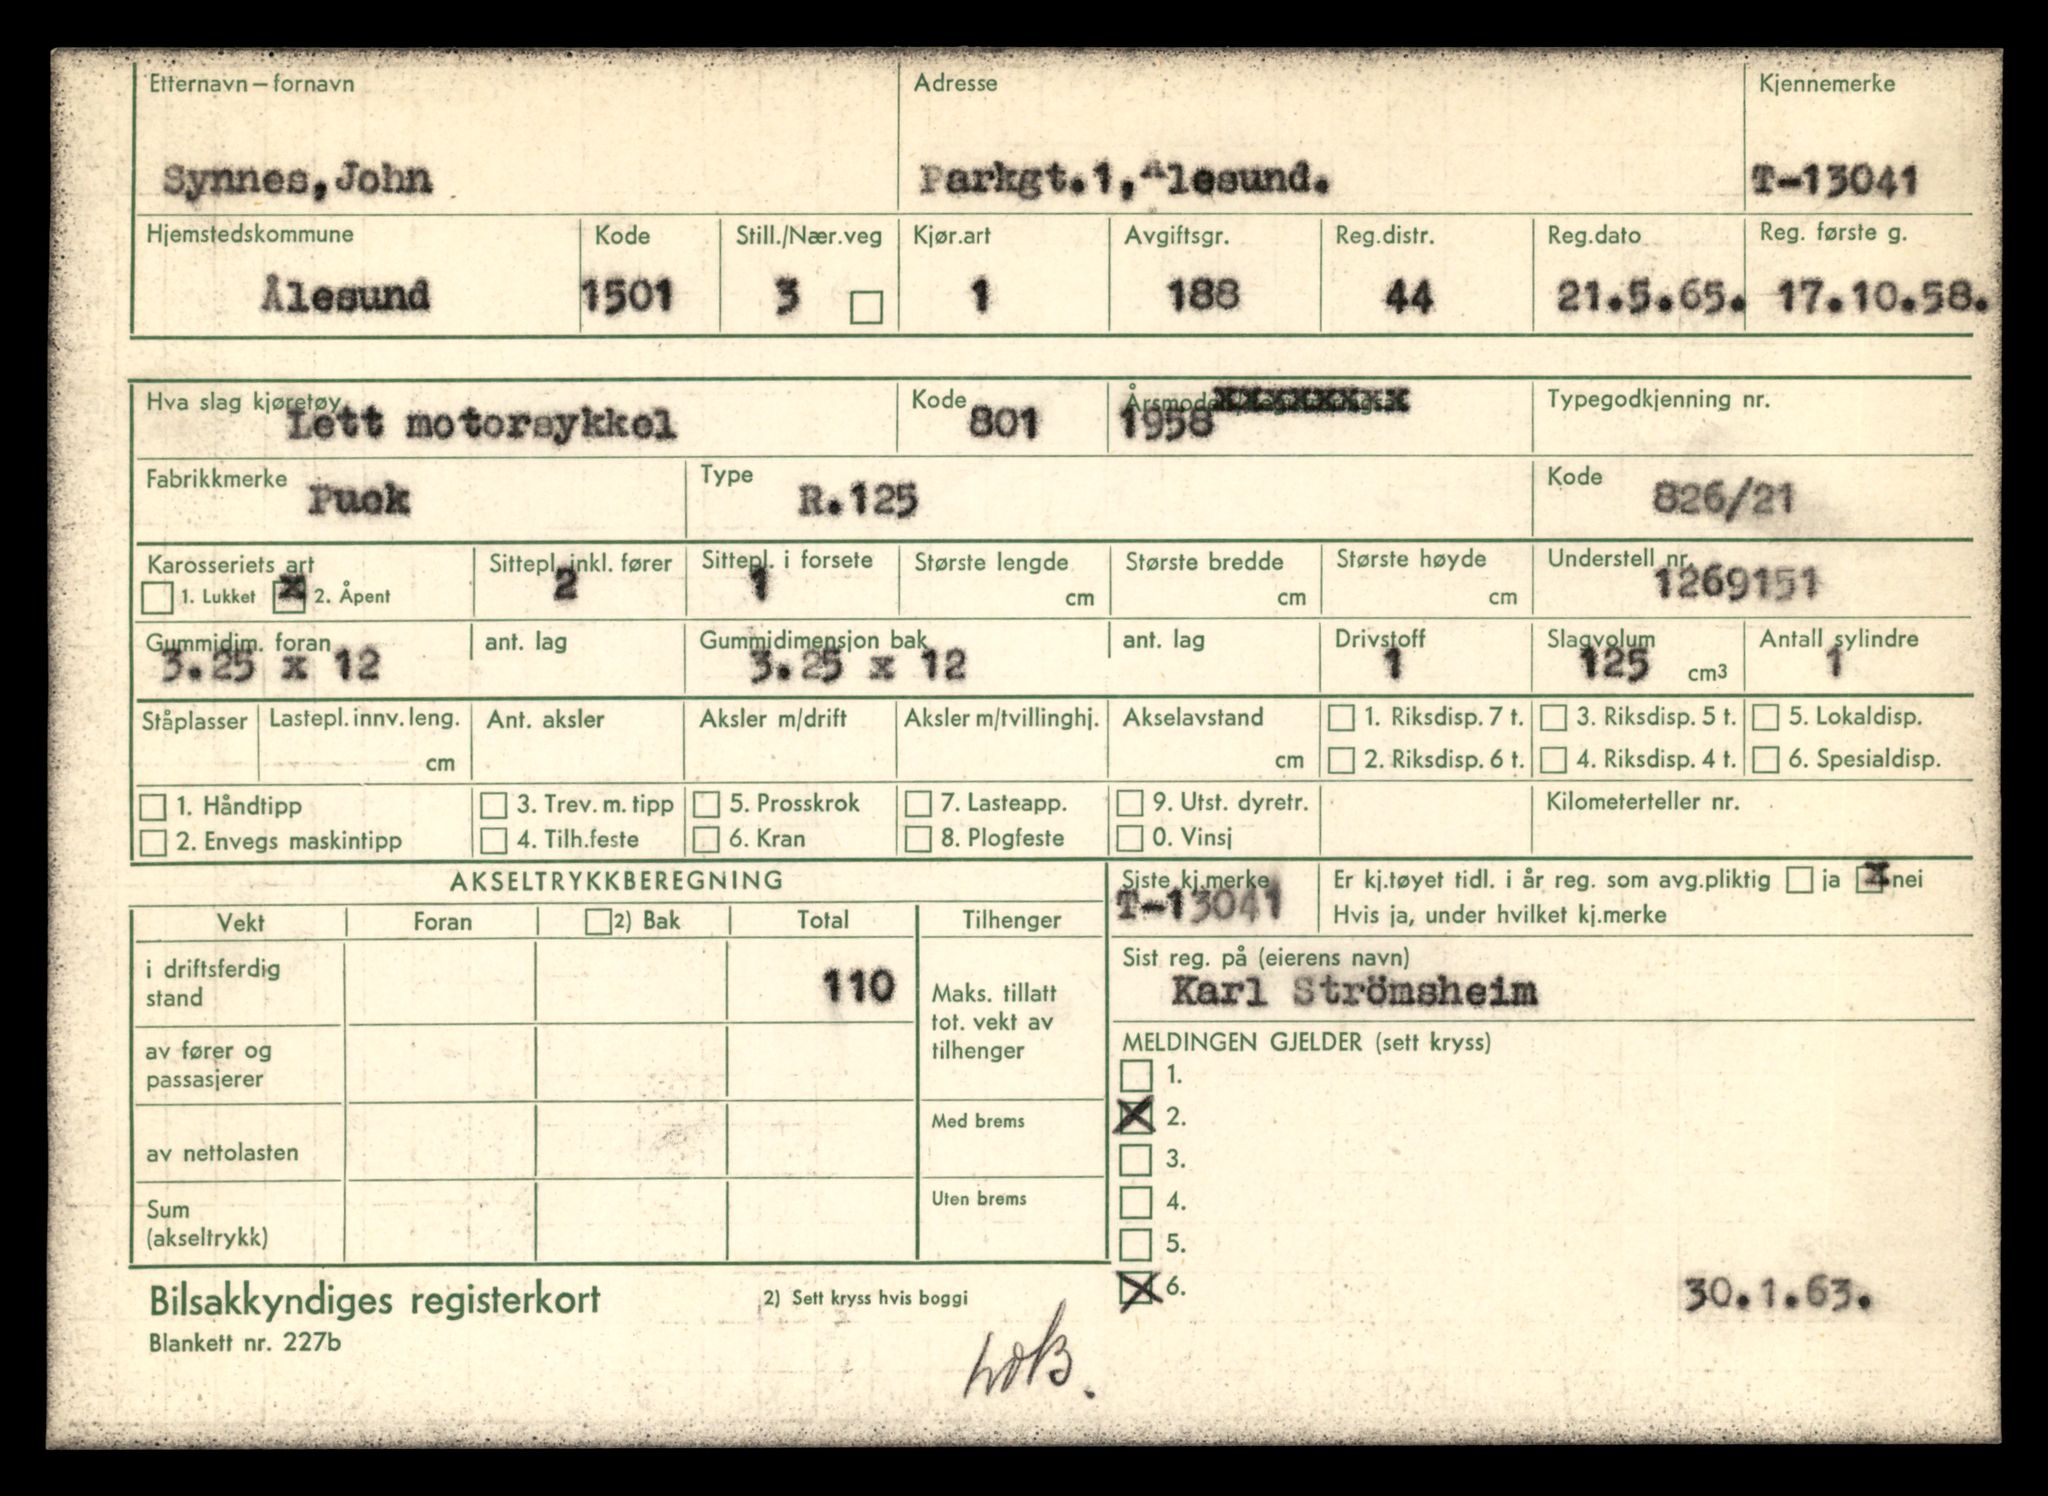 Etternavn – fornavn Adresse Kjennemerke
Synnes, John Parkgt.1, Alesund. T-13041
Hjemstedskommune Kode Still./Nær.veg Kjør.art Avgiftsgr. Reg.distr. Reg.dato Reg. første g.
Ålesund 1501 3 1 188 44 21.5.65. 17.10.58.
Hva slag kjøretøy Kode Typegodkjenning nr.
Lett motorsykkel 801 1958 xxxxxxxx
Fabrikkmerke Type Kode
Puck R.125 826/21
Karosseriets art Sittepl. inkl. fører Sittepl. i forsete Største lengde Største bredde Største høyde Understell nr.
1. Lukket x 2. Åpent 2 1 cm cm cm 1269151
Gummidim. foran ant. lag Gummidimensjon bak ant. lag Drivstoff Slagvolum Antall sylindre
3.25 x 12 3.25 x 12 1 125 cm3 1
Ståplasser Lastepl. innv. leng. Ant. aksler Aksler m/drift Aksler m/tvillinghj. Akselavstand 1. Riksdisp. 7 t. 3. Riksdisp. 5 t. 5. Lokaldisp.
cm cm 2. Riksdisp. 6 t. 4. Riksdisp. 4 t. 6. Spesialdisp.
1. Håndtipp 3. Trev. m. tipp 5. Prosskrok 7. Lasteapp. 9. Utst. dyretr. Kilometerteller nr.
2. Envegs maskintipp 4. Tilh.feste 6. Kran 8. Plogfeste 0. Vinsj
AKSELTRYKKBEREGNING Siste kj.merke Er kj.tøyet tidl. i år reg. som avg.pliktig ja x nei
T-13041 Hvis ja, under hvilket kj.merke
Vekt Foran 2) Bak Total Tilhenger
Sist reg. på (eierens navn)
Karl Strömsheim
i driftsferdig
stand 110
Maks. tillatt
tot. vekt av
tilhenger
av fører og
passasjerer
MELDINGEN GJELDER (sett kryss)
1.
X 2.
Med brems
av nettolasten
3.
Uten brems
4.
Sum
(akseltrykk)
5.
X 6. 30.1.63.
Bilsakkyndiges registerkort 2) Sett kryss hvis boggi
Blankett nr. 227b